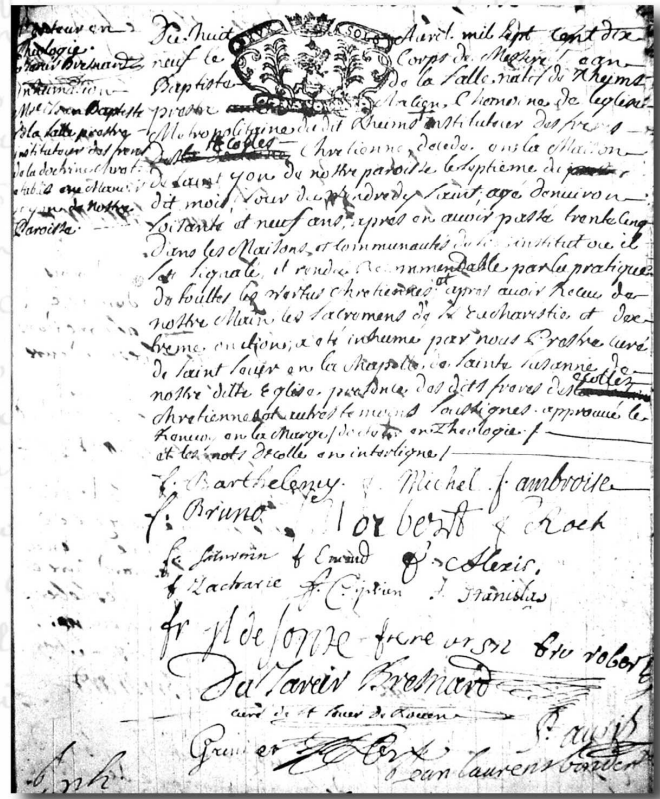 Docteur en
Theologie.
Bresnard
Inhumation
Mre Jean Baptiste
de la Salle prestre
instituteur des freres
de la doctrine chret
de notre
Paroisse
Du Huit Avril mil sept cent dix
neuf le Corps de Messire Jean
Baptiste de la Salle natif de Rheims
prestre ancien Chanoine de leglise
Metropolitaine dudit Rheims instituteur des freres
des Ecolles Chretienne decede en la Maison
de Saint yon de notre paroisse le septieme du
dit mois, jour du vendredy saint, agé denviron
soixante et neuf ans, apres en avoir passé trente cinq
dans les Maisons et communautés de institut ou il
sest signalé, et rendu Recommendable par la pratique
de touttes les vertus chretiennes et apres avoir Receu de
nostre Main, les sacremens de l Eucharistie et dex
treme onction, a été inhumé par nous Prestre curé
de Saint Sever en la Chapelle de Sainte Suzanne de
nostre ditte Eglise presence des dits freres des Ecolles
chretienne et autres temoins soussignes. approuvé le
en la Marge, docteur en Theologie
et les mots decolle en interligne
f. Barthelemy. f Michel f. ambroise
f. Bruno Norbert f Roch
f Emond f Alexis.
f Zacharie f. Ciprian f. Stanislas
fr ildefonse frere ursin bre robert
Du Jarrier Bresnard
curé de st sever de Rouen
Jean laurens